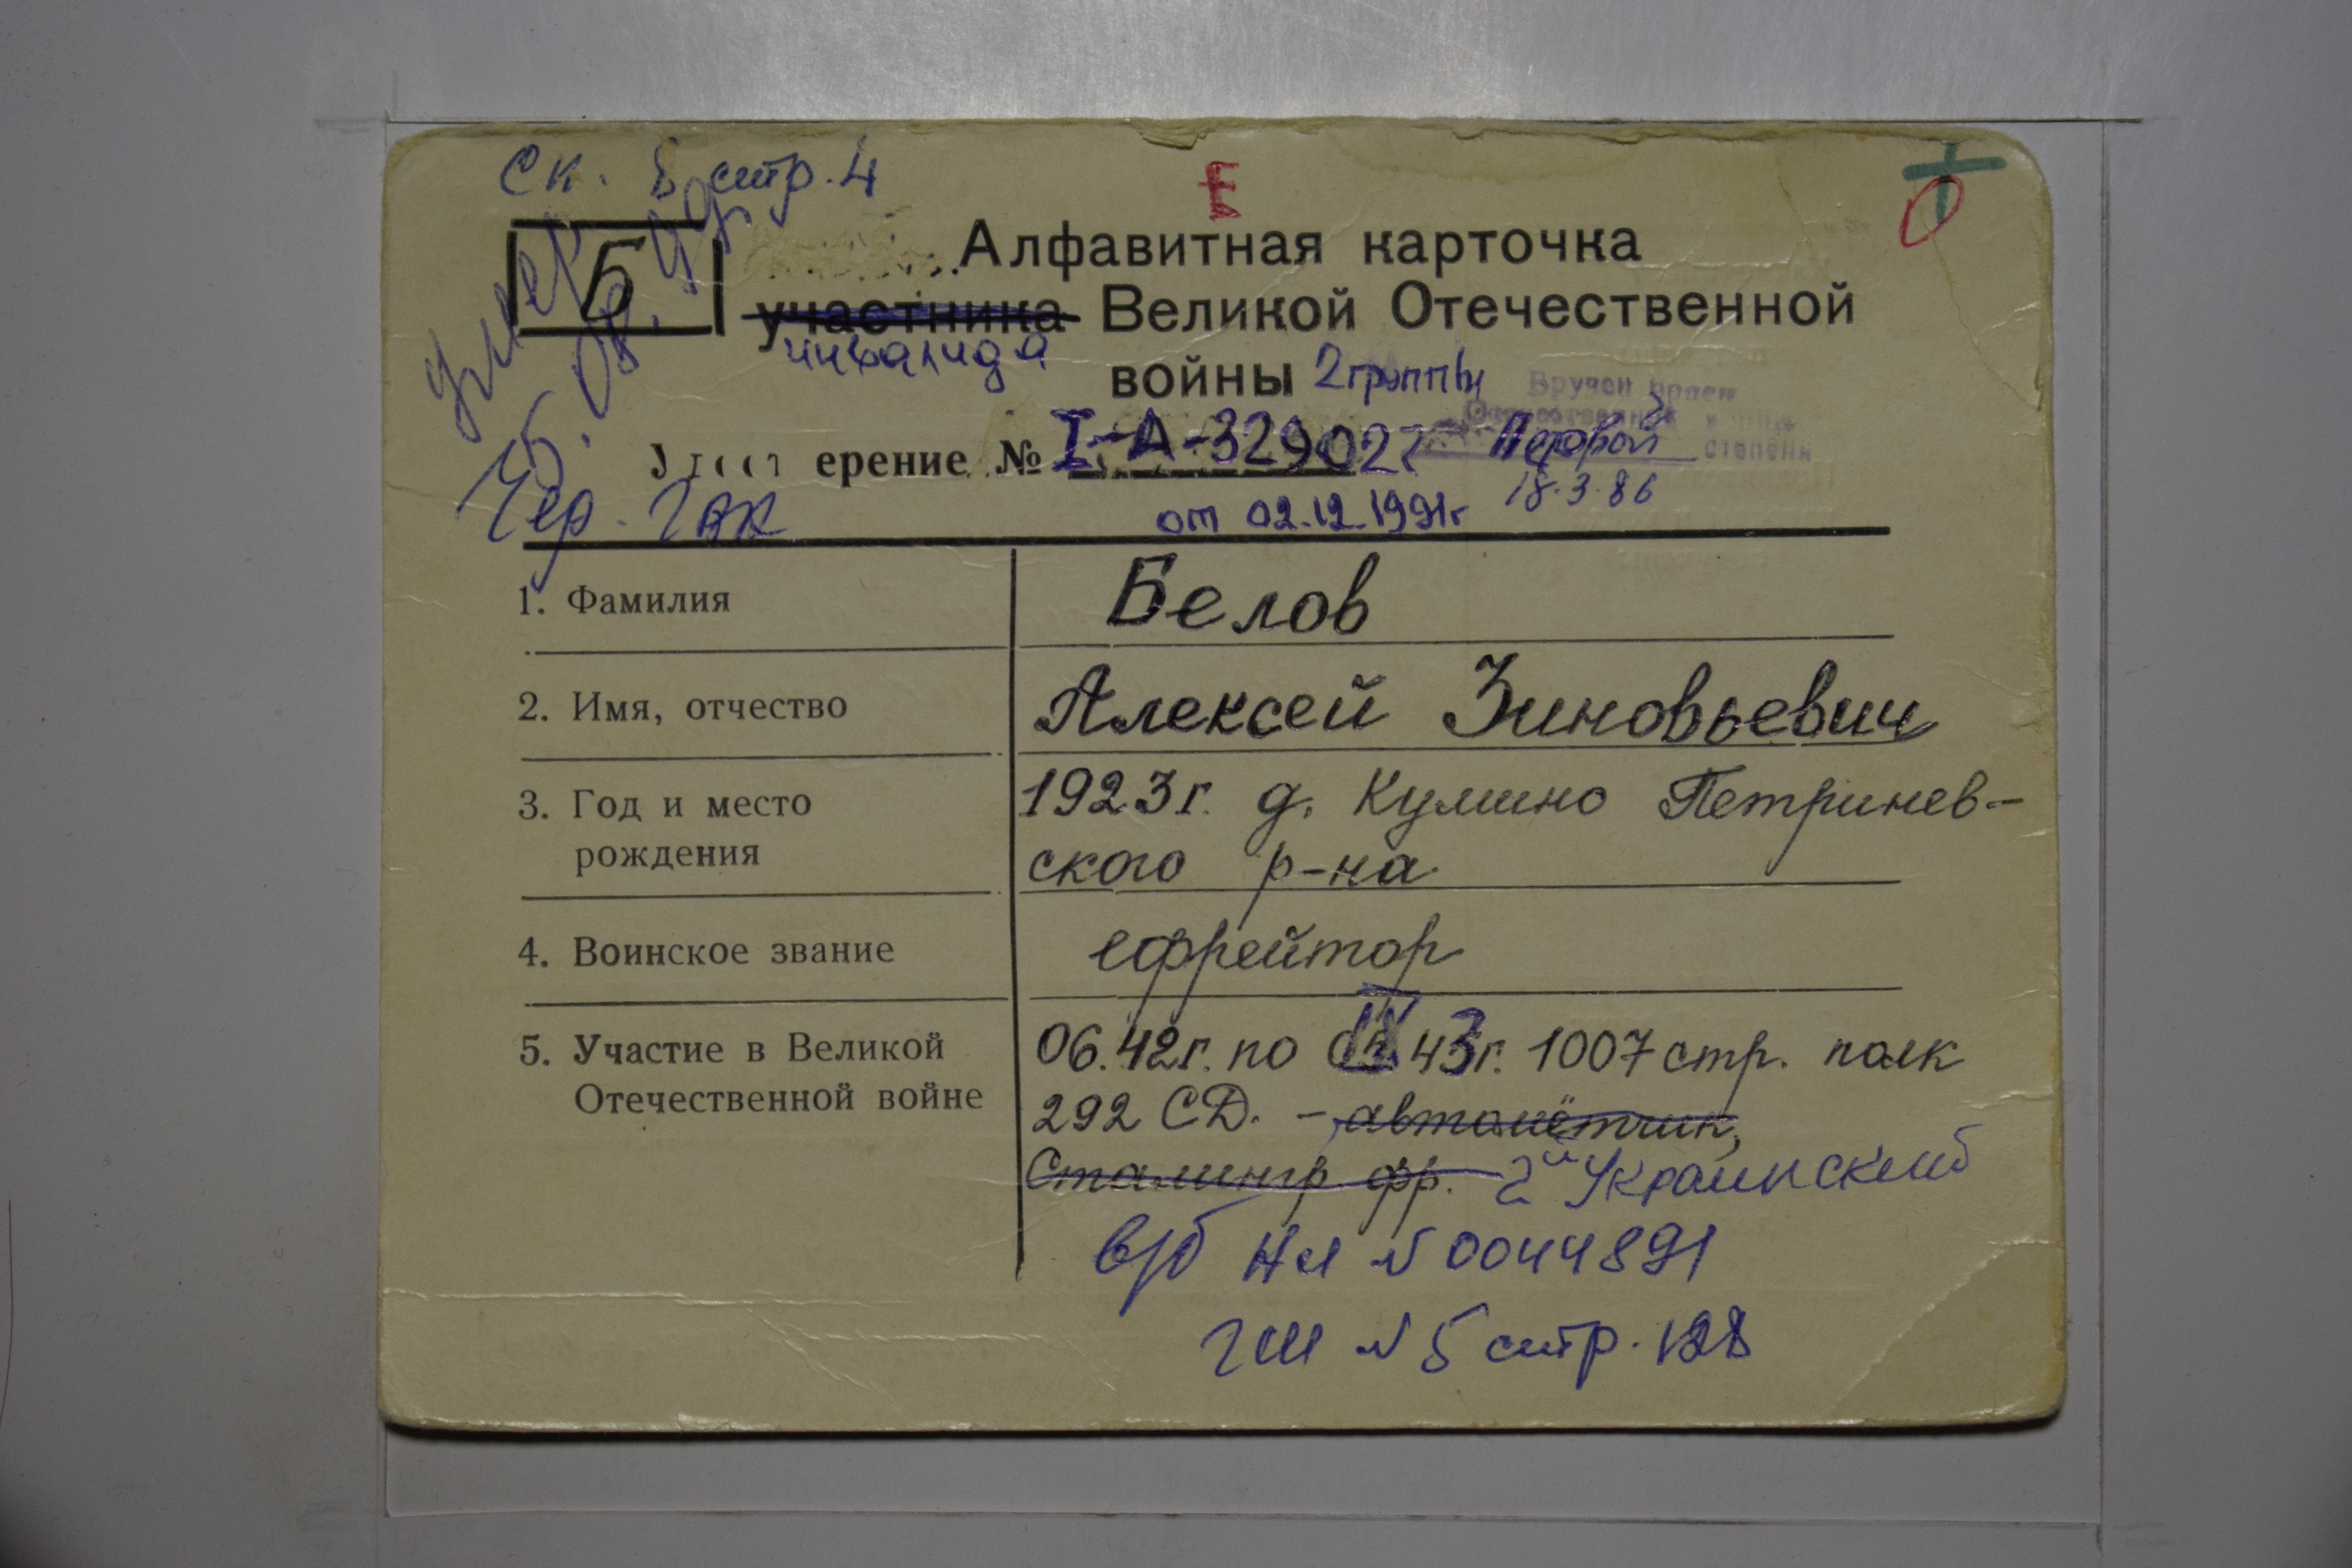 ск. Б стр. 4
Е
0
Б
умер
25. 08. 99г.
Чер. ГВК
Алфавитная карточка
участника Великой Отечественной
инвалида
войны 2 группы
Вручен орден
Отечественной войны
Первой степени
18.3.86
ерение № I-А-329027
от 02.12.1991г
1. Фамилия Белов
2. Имя, отчество Алексей Зиновьевич
3. Год и место 1923г. д. Кулино Петринев-
рождения ского р-на
4. Воинское звание ефрейтор
5. Участие в Великой 06.42г. по IX 43г. 1007 стр. полк
Отечественной войне 292 СД. - автоматчик,
Сталингр. фр. 2й Украинский
в/б НЛ N 0044891
ГШ N 5 стр. 128